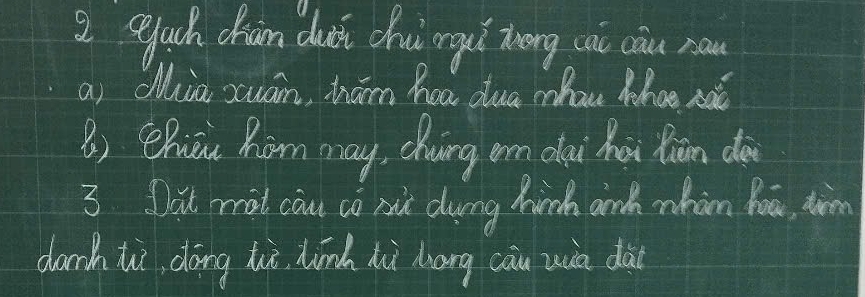 2 Gạch chân dưới chủ ngữ trong các câu sau
a) Mùa xuân, trăm hoa đua nhau khoe sắc
b) Chiều hôm nay, chúng em đại hội liên đội
3 Đặt một câu có sử dụng hình ảnh nhân hóa, tìm
danh từ, động từ, tính từ trong câu vừa đặt